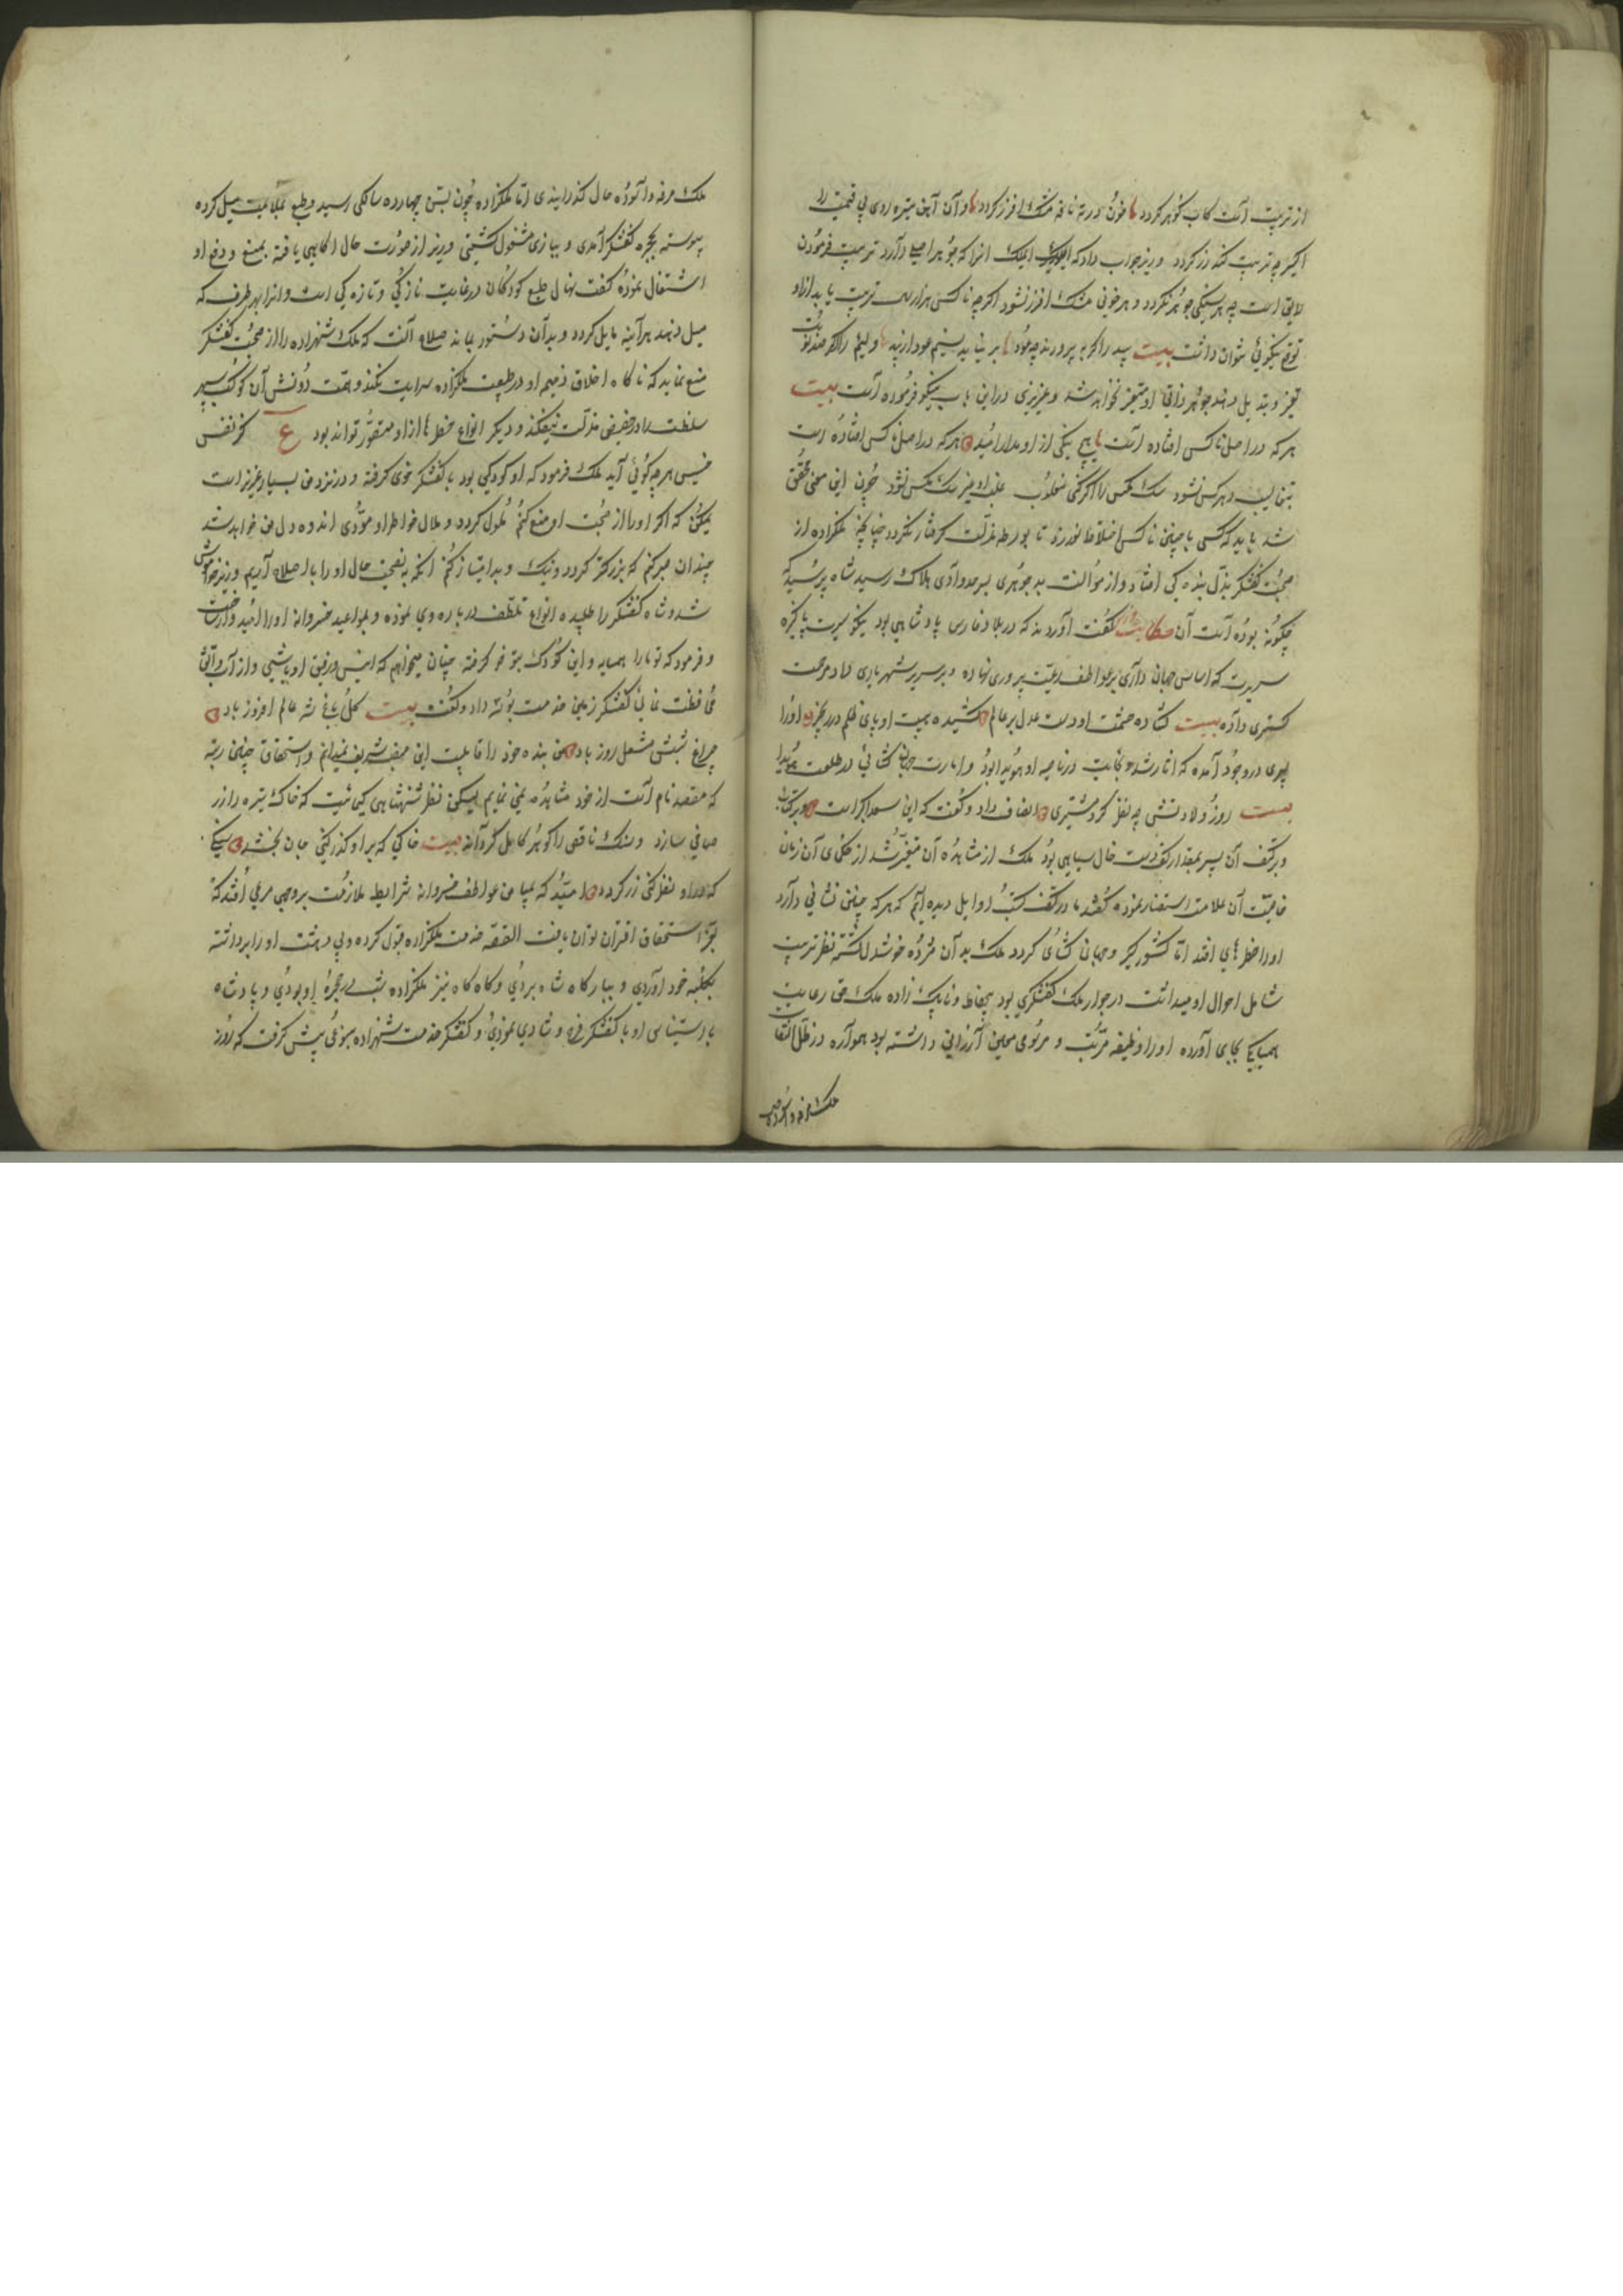 از تربیت است کاب گوهر گردد خون در ته نافه مشک اذفر گردد وان آهن تیره روی بی قیمت را
اکسیر چو تربیت کند زر گردد وزیر جواب داد که ای ملک انرا که جوهر اصلی دارد تربیت فرمودن
لایق است چه هر سنگی جوهر نگردد و هر خونی مشک اذفر نشود اگرچه ناکس هزار سال تربیت یابد ازو
توقع نیکوئی نتوان داشت بیت بید را گر بپرورند چو عود بر نیاید نسیم عود از بید و لئیم را اگر صد نوبت
تغیر و تبدیل دهند جوهر ذاتی او متغیر نخواهد شد و عزیزی در این باب نیکو فرموده است بیت
هر که در اصل ناکس افتاده است هیچ نیکی از او مدار امید هر که در اصل ناکس افتاده است
سک مکس را اگر کنی مقلوب قلب او غیر سک مکس نشود چون این معنی محقق
شد باید که کسی با چنین ناکسی اختلاط نورزد تا بورطه مذلت گرفتار نگردد چنانچه ملکزاده از
صحبت کفشگر بذل بنده کی افتاد و از موالفت بد جوهری بسر حد وادی هلاک رسید شاه پرسید که
چگونه بوده است آن حکایت گفت آورده اند که در بلاد فارس پادشاهی بود نیکو سیرت پاکیزه
سریرت که اساس جهان داری بر عواطف رعیت پروری نهاده و بر سریر شهریاری داد مرحمت
گستری داده بیت گشاده حشمت او دست عدل بر عالم کشیده هیبت او پای ظلم در زنجیر او را
پسری در وجود آمده که آثار رشد و نجابت در ناصیه او هویدا بود و امارت جهان گشائی در طلعت او پیدا
بیت روز ولادتش چو نظر کرد مشتری انصاف داد و گفت که این سعد اکبر است
و بر کتف آن پسر بمقدار کف دست خال سیاهی بود ملک از مشاهده آن متغیر شد از حکمای آن زمان
خاصیت آن علامت استفسار نموده گفتند ما در کتب اوایل دیده ایم که هر که چنین نشانی دارد
او را خطرهای افتد اما کشورگیر و جهان گشای گردد ملک بدان مژده خوشدل گشته نظر تربیت
شامل احوال او میداشت در جوار ملک کفشگری بود بیحفاظ و ناپاک زاده ملک حق رعایت
همسایگی بجای آورده او را وظیفه مرتب و مرسومی معین ارزانی داشته بود همواره در ظل التفات
ملک مرفه و آسوده
ملک مرفه و آسوده حال گذرانیدی اما ملکزاده چون بسن چهارده سالگی رسید و طبع بملاعبت میل کرده
پیوسته بحجره کفشگر آمدی و ببازی مشغول گشتی وزیر از صورت حال آگاهی یافته بمنع و دفع او
اشتغال نموده گفت نهال طبع کودکان در غایت نازکی و تازه کی است و انرا بهر طرف که
میل دهند هرآینه مایل گردد و بدان دستور بماند صلاح آنست که ملک شهزاده را از صحبت کفشگر
منع نماید که ناگاه اخلاق ذمیم او در طبیعت ملکزاده سرایت نکند و همت دونش آن کوکب سپهر
سلطنت را در حضیض مذلت نیفکند و دیگر انواع خطرها از او متصور تواند بود ع کز نفس
خسیس هر چه گوئی آید ملک فرمود که او کودکی بود با کفشگر خوی گرفته و در نزد من بسیار عزیز است
یمکن که اگر او را از صحبت او منع کنم ملول گردد و ملال خاطر او مؤدی اندوه دل من خواهد شد
چندان صبر کنم که بزرگتر گردد و نیک و بد امتیاز کند آنکه بنصیحت حال او را باصلاح آریم وزیر خاموش
شد و شاه کفشگر را طلبیده انواع تلطف درباره وی نموده و بمواعید خسروانه او را امید وار ساخت
و فرمود که تو ما را همسایه و این کودک بتو خو گرفته چنان میخواهم که انیس و رفیق او باشی و از آب و آتش
محافظت نمائی کفشگر زمین خدمت بوسه داد و گفت بیت گل باغ شه عالم افروز باد
چراغ شبش مشعل روز باد من بنده خود را قابلیت این منصب شریف نمیدانم و استحقاق چنین رتبه
که مقصد نام است از خود مشاهده نمی نمایم لیکن نظر شهنشاهی کیمیائیست که خاک تیره را زر
صافی سازد و سنگ ناقص را گوهر کامل گرداند بیت خاکی که بر او گذر کنی جان بخشد سنگی
که در او نظر کنی زر گردد امید که بمیامن عواطف خسروانه شرایط ملازمت بروجهی مرعی افتد که
بعز استحقاق اقتران توان یافت القصه خدمت ملکزاده قبول کرده و بی دهشت او را برداشته
بکلبه خود آوردی و ببارگاه شاه بردی و گاه گاه نیز ملکزاده شب در حجره او بودی و پادشاه
با دستیاری او با کفشگر فرح و شادی نمودی و کفشگر خدمت شهزاده بنوعی پیش گرفت که روز